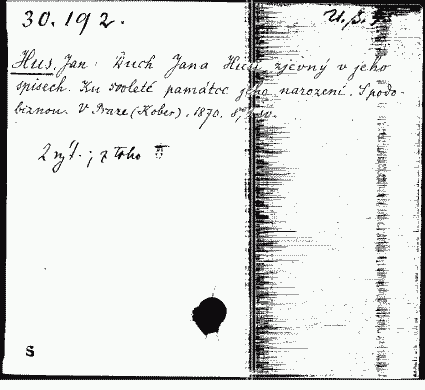 30.192.
Hus, Jan: Duch Jana Husi zjevný v jeho
spisech. Ku 500leté památce jeho narození. S podo-
biznou. V Praze (Kober). 1870. 8,
2 výt.; z toho
S